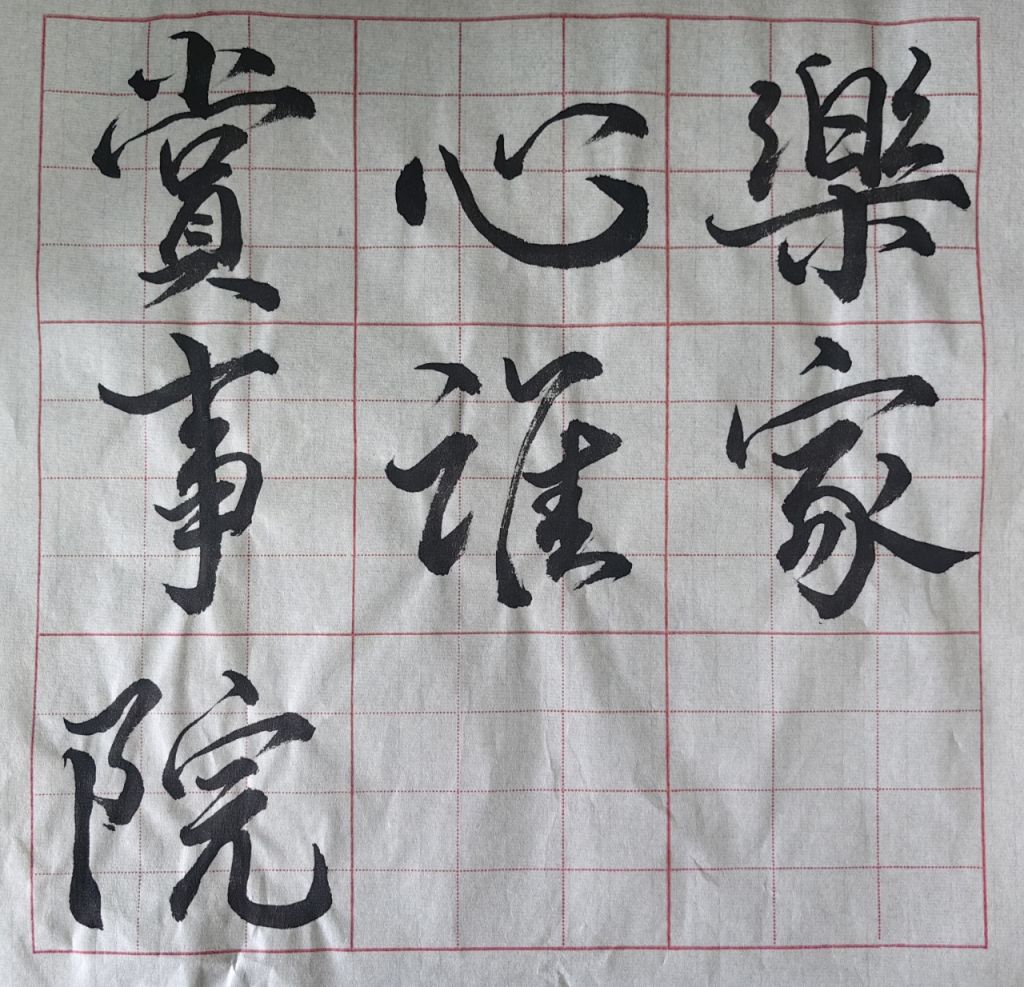 賞心樂
事誰家
院